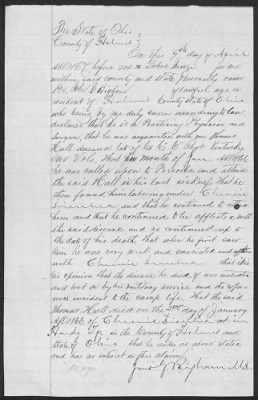 The State of Ohio
County of Holmes
On this 9th day of April
AD 1867 before me a
within said county and State personally came
Dr. John G Bigham of lawful age a
resident of Holmes County State of Ohio
who being by me duly sworn according to law
declares that he is a Practicing Physician and
Surgeon, that he was acquainted with one Thomas
Hull deceased late of Co. Regt Kentucky
Vols, that in month of Jan AD 1866
he was called upon to Prescribe and attend
the said Hull in his last sickness that he
then found him laboring under Chronic
Diarrhea and that he continued to
him and that he continued to be afflicted with
the said disease and so continued up to
the date of his death, that when he first saw
him he was very weak and emaciated and
with Chronic Diarrhea that it is
his opinion that the disease he died of was contracted
and brot on by his military service and the
incident to the camp life that the said
Thomas Hull died on the 22nd day of January
AD 1866 of Chronic Diarrhea at in
Hardy Tp. in the County of Holmes and
State of Ohio that he resides as above stated
and has no interest in this claim
Jno G Bigham M.D.